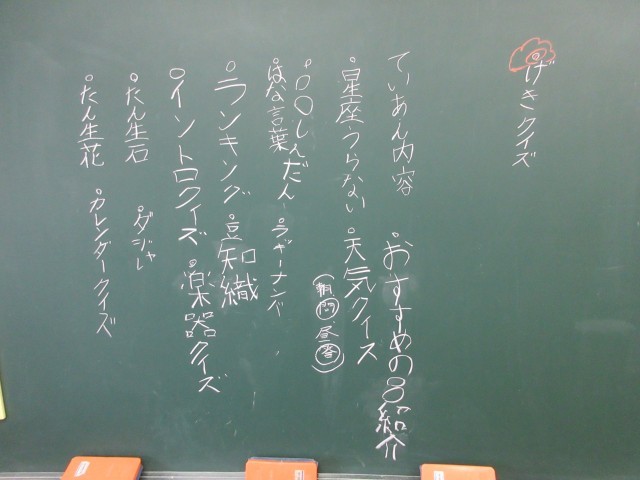 げきクイズ
ていあん内容
・おすすめの○紹介
・星座うらない
・天気クイズ
(朝問 昼答)
・○○しんだん
・はな言葉
・ラッキーナンバー
・ランキング
・豆知織
・イントロクイズ
・楽器クイズ
・たん生石
・ダジャレ
・たん生花
・カレンダークイズ